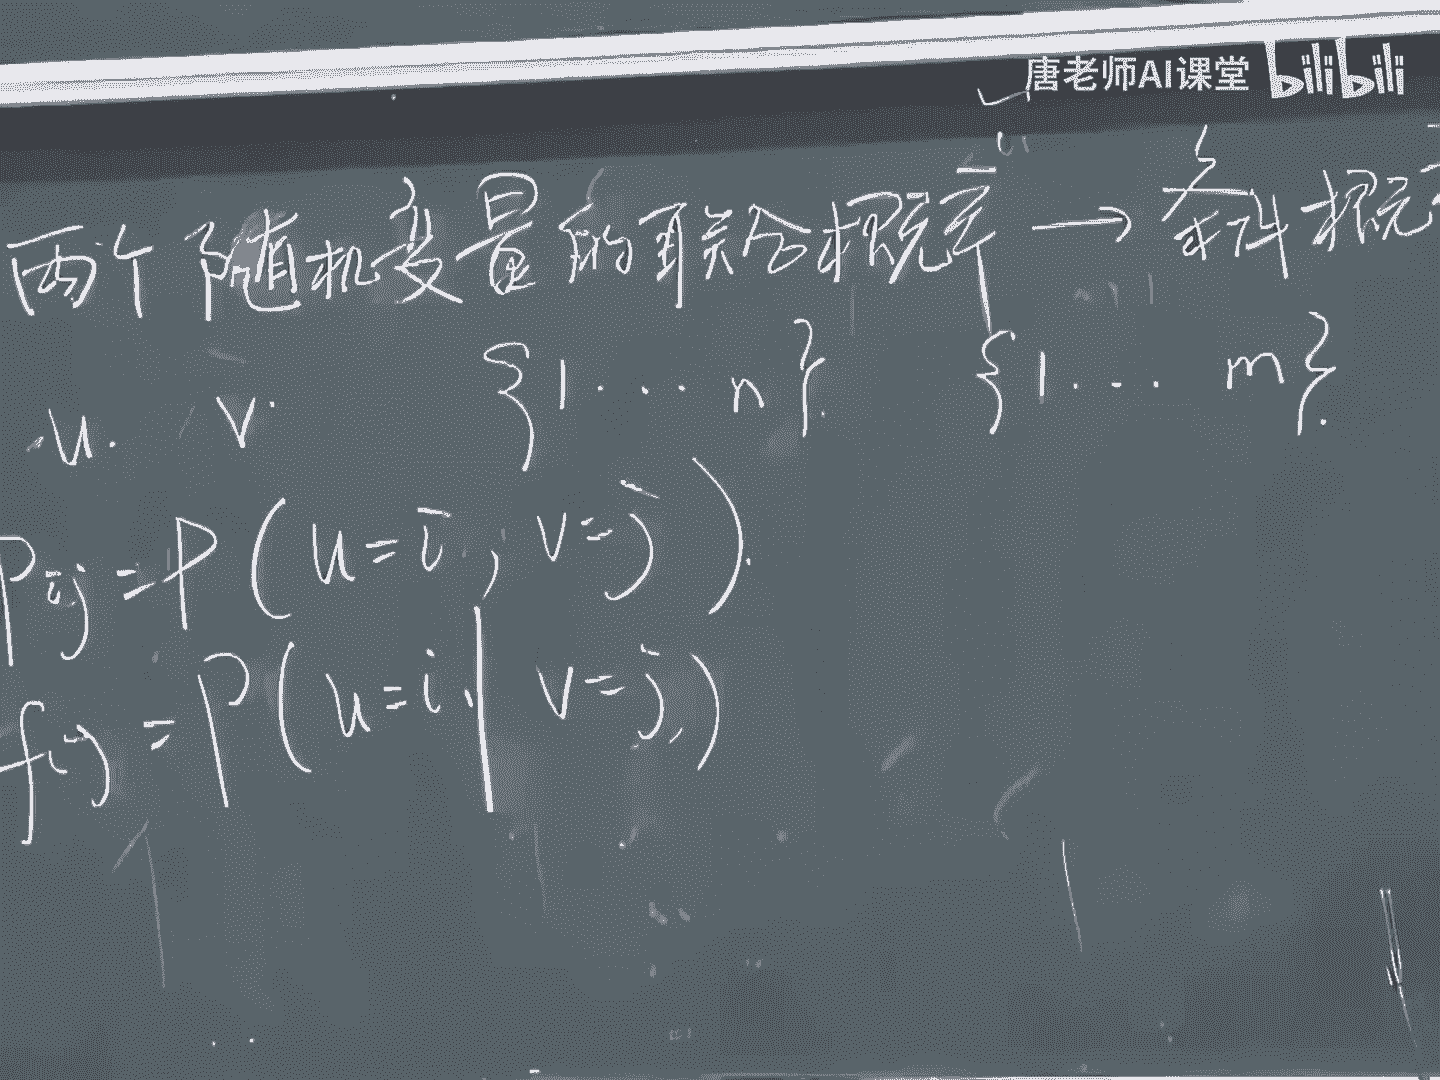 唐老师AI课堂 bilibili
两个随机变量的联合概率 → 条件概
u. v. {1 ... n}. {1 ... m}.
Pij = P(u=i, v=j).
fij = P(u=i | v=j)